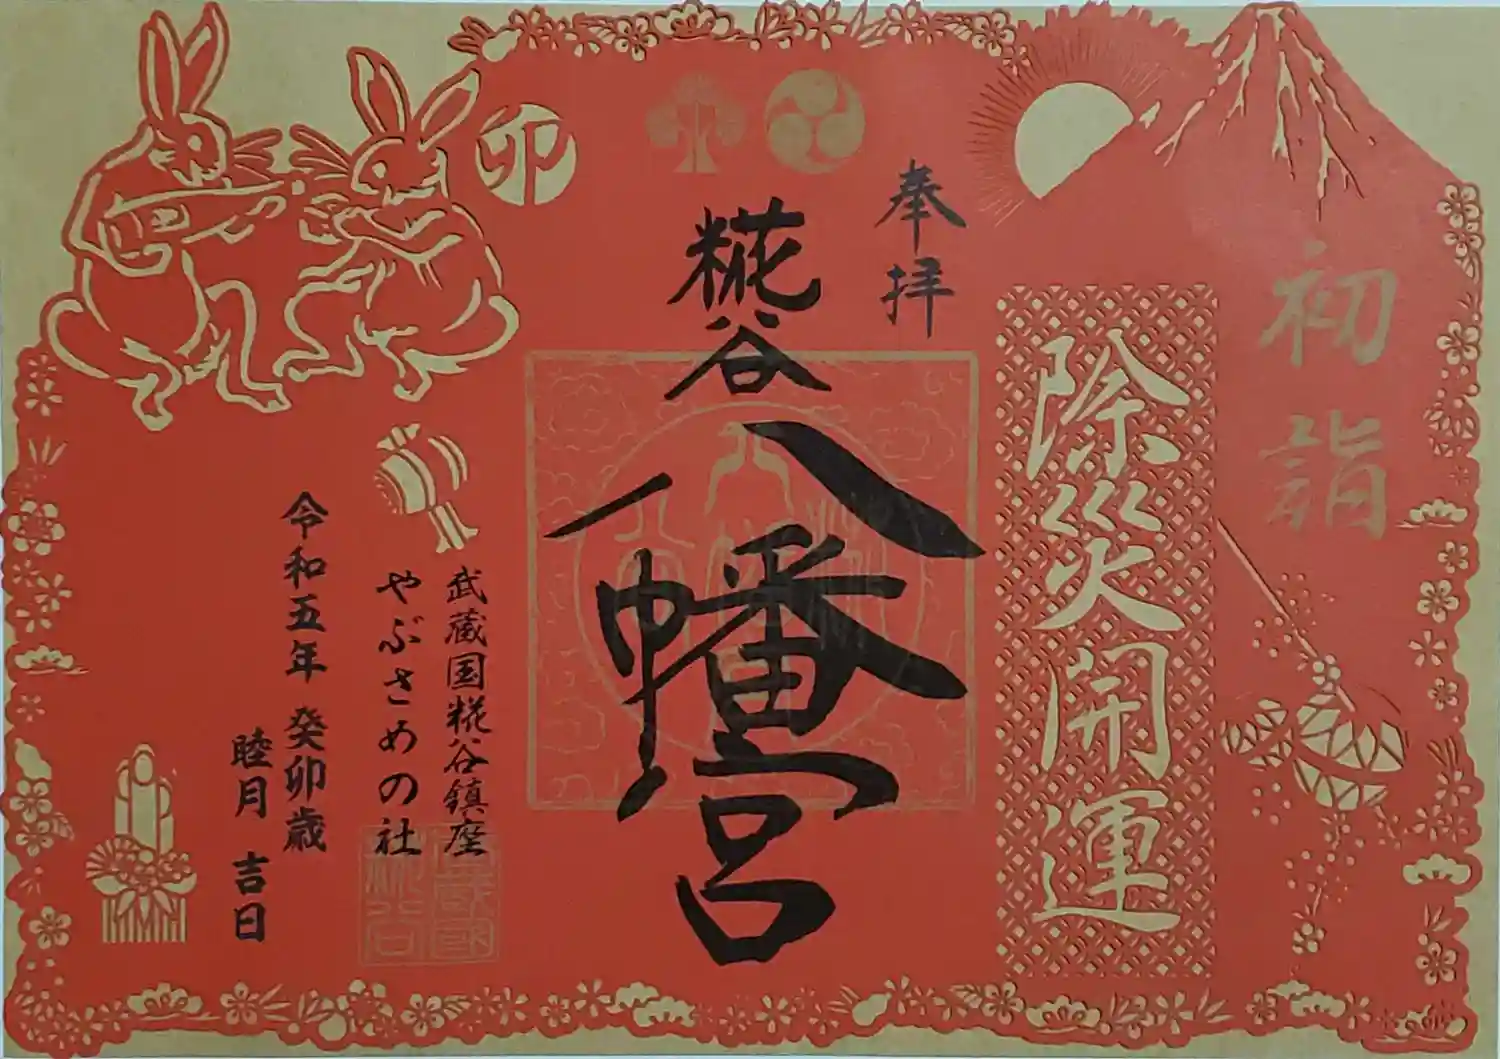 初詣
除災開運
奉拝
糀谷
八幡宮
卯
武蔵国糀谷鎮座
やぶさめの社
令和五年 癸卯歳
睦月 吉日